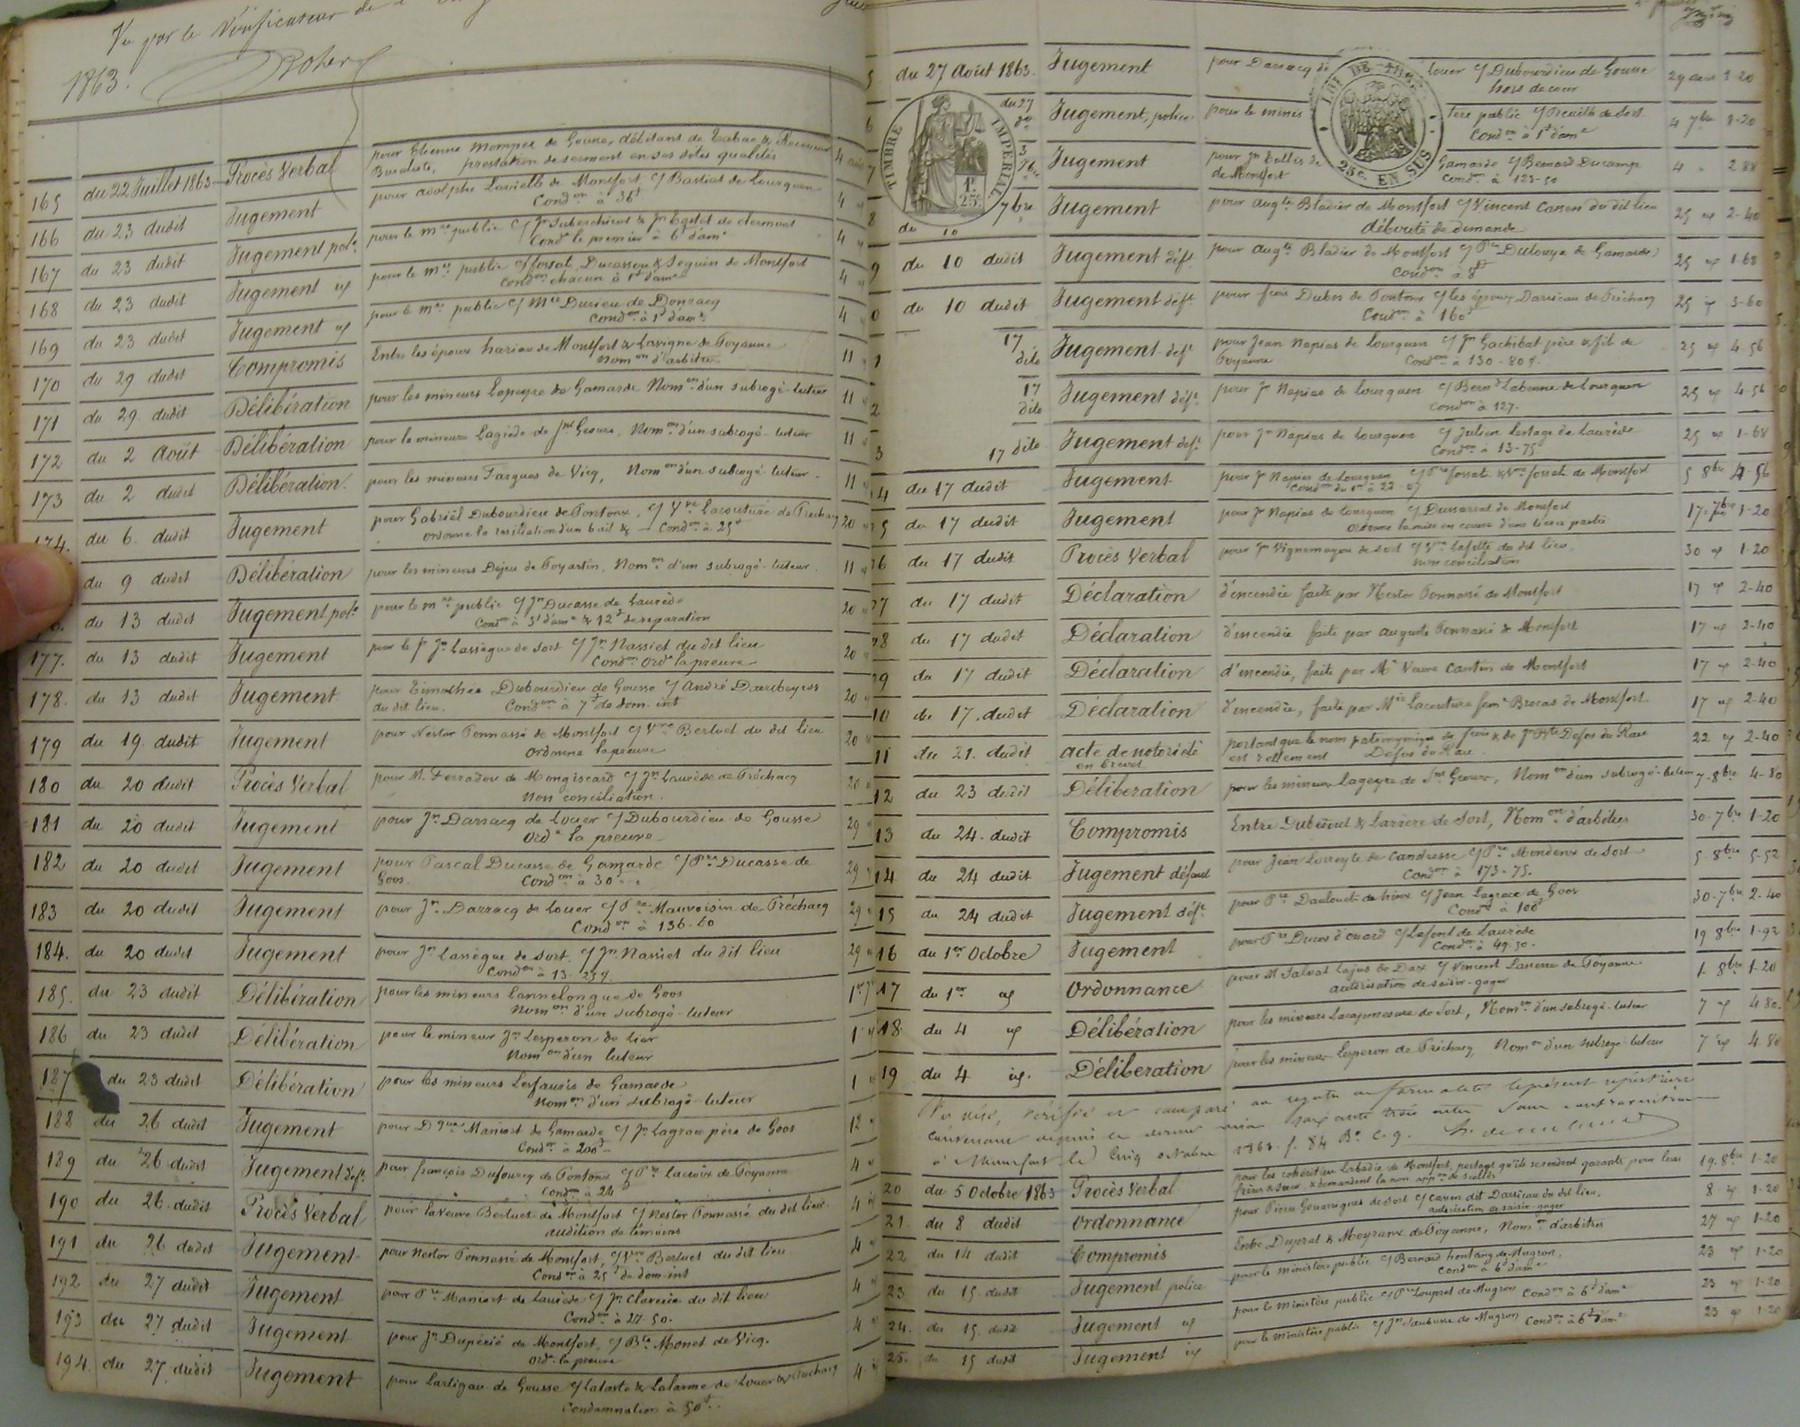 Vu par le Vérificateur de l'
1863.
165 du 22 Juillet 1863 Procès Verbal pour Etienne de Gousse, débitant de Tabac & Receveur
Buraliste, prestation de serment en ses dites qualités 4
166 du 23 dudit Jugement pour Adolphe de Montfort c/ Bastiat de Lourquen
Cond.on à 36f 4
167 du 23 dudit Jugement pol.e pour le m.re public c/ J.n & J.n de clermont
Cond.e le premier à 6f d'am.e 4
168 du 23 dudit Jugement id pour le m.re public c/ Ducasson & Seguin de Montfort
Cond.on chacun à 1f d'am.e 4
169 du 23 dudit Jugement id pour le m.re public c/ M.ie Ducieu de Donzacq
Cond.on à 1f d'am.e 4
170 du 29 dudit Compromis Entre les époux de Montfort & Lavigne de Poyanne
Nom.on d'arbitre 11
171 du 29 dudit Délibération pour les mineurs Lapeyre de Gamarde Nom.on d'un subrogé-tuteur 11
172 du 2 Août Délibération pour le mineure Lagiède de Geours, Nom.on d'un subrogé-tuteur 11
173 du 2 dudit Délibération pour les mineurs Fargues de Vicq, Nom.on d'un subrogé-tuteur. 11
174. du 6 dudit Jugement pour Gabriël Dubourdieu de Pontonx, c/ V.ve Lacouture de Préchacq
ordonne la résiliation d'un bail & Cond.on à 25f 20
du 9 dudit Délibération pour les mineurs Dejeu de Poyartin, Nom.on d'un subrogé-tuteur. 11
du 13 dudit Jugement pol.e pour le m.re public c/ J.n Ducasse de Laurède
Cond.on à 5f d'am.e & 12f de réparation 20
177. du 13 dudit Jugement pour le S.r J.n Lassègue de Sort c/ J.n Nassiet du dit lieu
Cond.on Ord.e la preuve 20
178. du 13 dudit Jugement pour Timothée Dubourdieu de Gousse c/ André
du dit lieu. Cond.on à 7f de dom. int 20
179 du 19 dudit Jugement pour Nestor Ponnassé de Montfort c/ V.ve Bertuet du dit lieu
Ordonne la preuve 20
180 du 20 dudit Procès Verbal pour M. Ferradou de Mongiscard c/ J.n Laurède de Préchacq
Non conciliation. 20
181 du 20 dudit Jugement pour J.n Darracq de Louer c/ Dubourdieu de Gousse
Ord.e la preuve 29
182 du 20 dudit Jugement pour Pascal Ducasse de Gamarde c/ P.re Ducasse de
Goos. Cond.on à 30 29
183 du 20 dudit Jugement pour J.n Darracq de Louer c/ P.re Mauvoisin de Préchacq
Cond.on à 136.60 29
184. du 20 dudit Jugement pour J.n Lassègue de Sort c/ J.n Nassiet du dit lieu
Cond.on à 13. 29
185. du 23 dudit Délibération pour les mineurs Lannelongue de Goos
Nom.on d'un subrogé-tuteur 1er
186 du 23 dudit Délibération pour le mineur J.n Lesperon de Lier
Nom.on d'un tuteur 1
187 du 23 dudit Délibération pour les mineurs Lesfauris de Gamarde
Nom.on d'un subrogé-tuteur 1
188 du 26 dudit Jugement pour D.que Maniort de Gamarde c/ J.n Lagrace père de Goos
Cond.on à 200f 12
189 du 26 dudit Jugement déf.t pour françois Dufourcq de Pontonx c/ P.re Lacroix de Poyanne
Cond.on à 24 4
190 du 26 dudit Procès Verbal pour la Veuve Bertuet de Montfort c/ Nestor Ponnassé du dit lieu.
audition de témoins 4
191 du 26 dudit Jugement pour Nestor Ponnassé de Montfort, c/ V.ve Bertuet du dit lieu
Cond.on à 25f de dom-int 4
192 du 27 dudit Jugement pour P.re Maniort de Laurède c/ J.n Claverie du dit lieu
Cond.on à 27-50. 4
193 du 27 dudit Jugement pour J.n Dupécié de Montfort, c/ B.te Monet de Vicq.
Ord.e la preuve 4
194. du 27 dudit Jugement pour Lartigau de Gousse c/ Lataste & Lalanne de Louer & Préchacq
Condamnation à 50f. 4
TIMBRE IMPERIAL
1f 25c
25c. EN SUS
5 du 27 Août 1863. Jugement pour Darracq de Louer c/ Dubourdieu de Gousse
hors de cour 29 1-20
6 du 27 do Jugement, police pour le ministère public c/ de Sort
Cond.on à 1f d'am.e 4 7bre 1-20
7 3 7bre Jugement pour J.n de Gamarde c/ Bernard Ducamp
de Montfort Cond.on à 123-50 4 2 88
8 du 10 7bre Jugement pour Aug.te Bladier de Montfort c/ Vincent du dit lieu
débouté de demande 25 id 2-40
9 du 10 dudit Jugement déf.t pour Aug.te Bladier de Montfort c/ P.re de Gamarde
Cond.on à 8f 25 id 1-68
0 du 10 dudit Jugement déf.t pour frois Dubos de Pontonx c/ les époux Darricau de Préchacq
Cond.on à 160f 25 id 3-60
1 17 dito Jugement déf.t pour Jean Napias de Lourquen c/ J.n Gachibat père & fils de
Poyanne Cond.on à 130-80f. 25 id 4-56
2 17 dito Jugement déf.t pour J.n Napias de Lourquen c/ Bern.d Labenne de Lourquen
Cond.on à 127- 25 id 4-56
3 17 dito Jugement déf.t pour J.n Napias de Lourquen c/ Julien Lestage de Laurède
Cond.on à 13-75 25 id 1-68
4 du 17 dudit Jugement pour J.n Napias de Lourquen c/ P.re fossat & V.ve fossat de Montfort
5 8bre 4 56
5 du 17 dudit Jugement pour J.n Napias de Lourquen c/ de Montfort
Ordonne la mise en cause d'une tierce partie 17-7bre 1-20
6 du 17 dudit Procès Verbal pour J.n Vignemayou de Sort c/ V.ve Lafitte du dit lieu.
non conciliation 30 id 1-20
7 du 17 dudit Déclaration d'incendie faite par Nestor Ponnassé de Montfort 17 id 2-40
8 du 17 dudit Déclaration d'incendie faite par auguste Ponnassé de Montfort 17 id 2-40
9 du 17 dudit Déclaration d'incendie, faite par M.r Veuve Cantin de Montfort 17 id 2-40
10 du 17 dudit Déclaration d'incendie, faite par M.ie Lacouture fem.e Brocas de Montfort. 17 id 2-40
11 du 21 dudit acte de notoriété
en brevet portant que le nom patronymique de frois & de J.n B.te Defos du Rau
est réellement Defos du Rau 22 id 2-40
12 du 23 dudit Délibération pour les mineurs Lageyre de S.t Geours, Nom.on d'un subrogé-tuteur 7-8bre 4-80
13 du 24 dudit Compromis Entre & Larrere de Sort, Nom.on d'arbitre 30-7bre 1-20
14 du 24 dudit Jugement défaut pour Jean Lorreyte de Candresse c/ P.re Mondenx de Sort
Cond.on à 173-75. 5 8bre 5-52
15 du 24 dudit Jugement déf.t pour P.re c/ Jean Lagrace de Goos
Cond.on à 100f 30-7bre 2-40
16 du 1er Octobre Jugement pour P.re Ducos d'onard c/ Lafont de Laurède
Cond.on à 49-50- 19 8bre 1-92
17 du 1er id Ordonnance pour M Salvat Lajus de Dax c/ Vincent Lanenne de Poyanne
autorisation de saisir-gager 1- 8bre 1-20
18 du 4 id Délibération pour les mineurs de Sort, Nom.on d'un subrogé-tuteur 7 id 4 80
19 du 4 id. Délibération pour les mineurs Lesperon de Préchacq, Nom.on d'un subrogé-tuteur 7 id 4 80
Vu visé, vérifié et comparé au registre des formalités le présent répertoire
contenant depuis le dernier visa soixante trois actes Sans contravention
à Montfort le Cinq octobre 1863. f. 84 R.o C. 9.
20 du 5 Octobre 1863 Procès Verbal pour les héritiers Labadie de Montfort, portant qu'ils se rendent garants pour leurs
frères & sœur & demandent la non app.on de scellés 19-8bre 1-20
21. du 8 dudit Ordonnance pour Pierre de Sort c/ Cazen dit Darricau du dit lieu.
autorisation de saisir-gager 8 id 1-20
22 du 14 dudit Compromis Entre Duprat & Meyranx de Poyanne, Nom.on d'arbitres 27 id 1-20
23 du 15 dudit Jugement police pour le ministère public c/ Bernard de Mugron,
Cond.on à 6f d'am.e 23 id 1-20
24. du 15 dudit Jugement id pour le ministère public c/ P.re Loupret de Mugron Cond.on à 6f d'am.e 23 id 1-20
25. du 15 dudit Jugement id pour le ministère public c/ J.n de Mugron Cond.on à 6f d'am.e 23 id 1-20